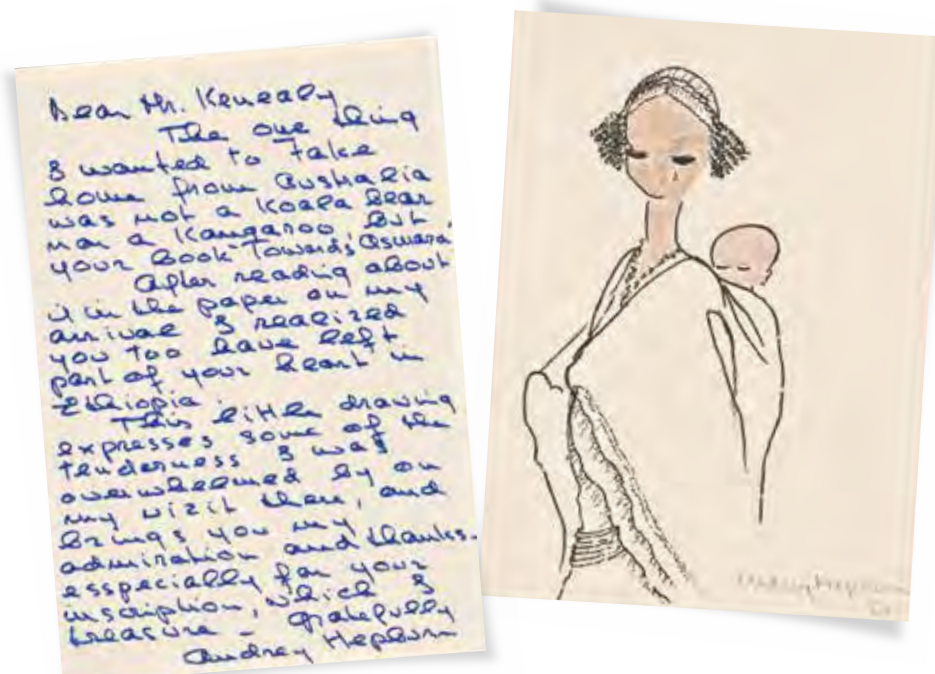 Dear Mr. Keneally
The one thing
I wanted to take
home from Australia
was not a Koala bear
nor a Kangaroo, but
your book "Towards Asmara.
After reading about
it in the paper on my
arrival I realized
you too have left
part of your heart in
Ethiopia.
This little drawing
expresses some of the
tenderness I was
overwhelmed by on
my vizit there, and
brings you my
admiration and thanks.
esspecially for your
inscription, which I
gratefully
treasure –
Audrey Hepburn
Audrey Hepburn